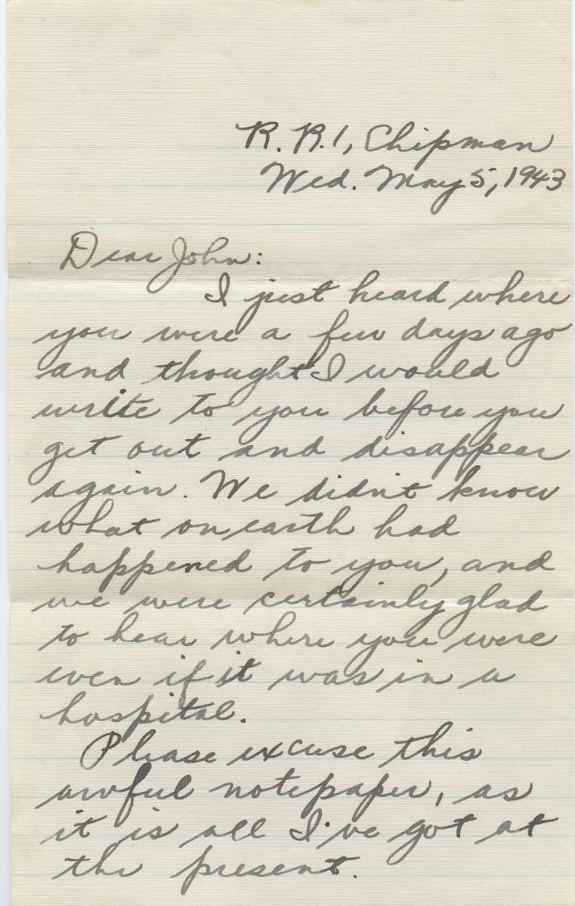 R. R. 1, Chipman
Wed. May 5, 1943
Dear John:
I just heard where
you were a few days ago
and thought I would
write to you before you
get out and disappear
again. We didn't know
what on earth had
happened to you, and
we were certainly glad
to hear where you were
even if it was in a
hospital.
Please excuse this
awful notepaper, as
it is all I've got at
the present.